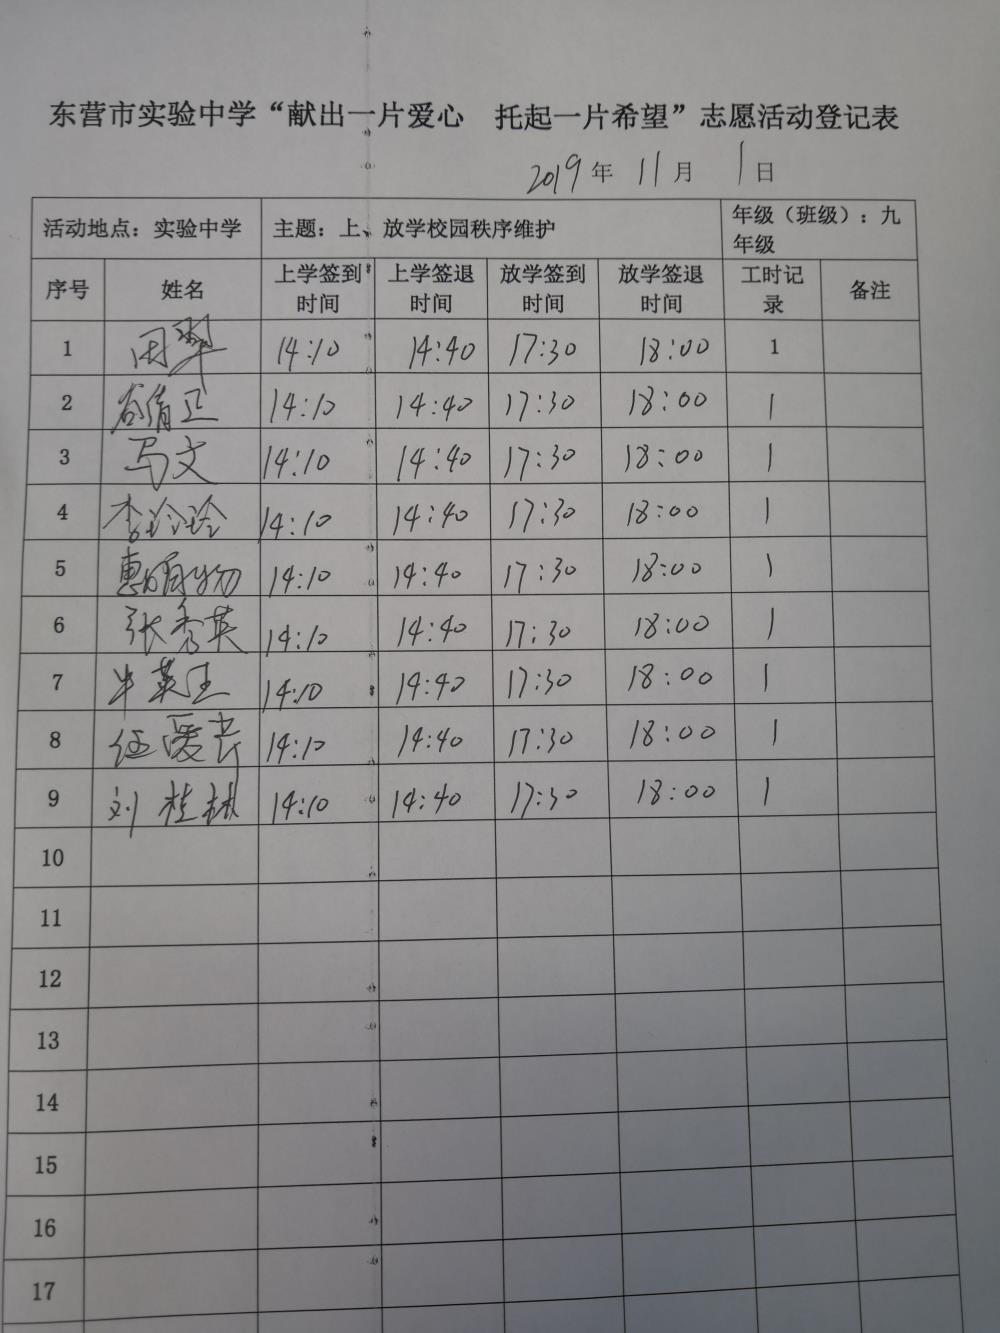 东营市实验中学“献出一片爱心 托起一片希望”志愿活动登记表
2019年 11月 1日
活动地点：实验中学 主题：上、放学校园秩序维护 年级（班级）：九年级
序号 姓名 上学签到时间 上学签退时间 放学签到时间 放学签退时间 工时记录 备注
1 14:10 14:40 17:30 18:00 1
2 14:10 14:40 17:30 18:00 1
3 马文 14:10 14:40 17:30 18:00 1
4 李玲玲 14:10 14:40 17:30 18:00 1
5 14:10 14:40 17:30 18:00 1
6 张秀英 14:10 14:40 17:30 18:00 1
7 14:10 14:40 17:30 18:00 1
8 14:10 14:40 17:30 18:00 1
9 刘桂林 14:10 14:40 17:30 18:00 1
10
11
12
13
14
15
16
17